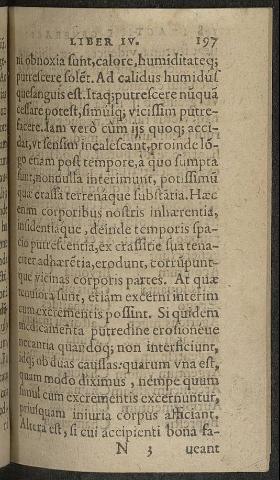 LIBER IV. 197
ni obnoxia sunt, calore, humiditateq;
putrescere solẽt. Ad calidus humidus
que sanguis est. Itaq; putrescere nũquã
cessare potest, simulq; vicissim putre-
facere. Iam verò cum ijs quoq; acci-
dat, vt sensim incalescant, proinde lõ-
go etiam post tempore, à quo sumpta
sunt, nonnulla interimunt, potissimũ
quæ crassa terrenaque substãtia. Hæc
enim corporibus nostris inhærentia,
insidentiaque, deinde temporis spa-
cio putrescentia, ex crassitie sua tena-
citer adhærẽtia, erodunt, corrũpunt-
que vicinas corporis partes. At quæ
tenuiora sunt, etiam excerni interim
cum excrementis possint. Si quidem
medicamenta putredine erosioneue
necantia quandoq; non interficiunt,
idq; ob duas caussas: quarum vna est,
quam modo diximus, nempe quum
simul cum excrementis excernuntur,
priusquam iniuria corpus afficiant.
Altera est, si cui accipienti bona fa-
N 3 ueant